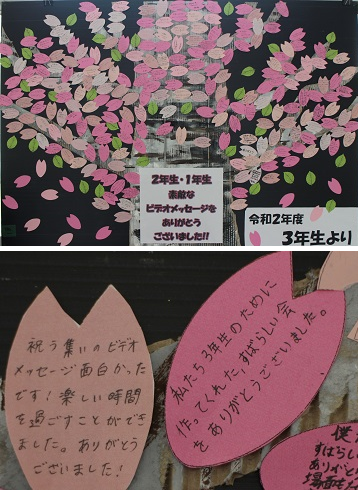 2年生・1年生
素敵な
ビデオメッセージを
ありがとう
ございました!!
令和2年度
3年生より
祝う集いのビデオ
メッセージ面白かった
です！楽しい時間
を過ごすことができ
ました。ありがとう
ございました！
私たち3年生のために
作ってくれた、すばらしい会
をありがとうございました。
僕
すばらし
ありがと
場面も